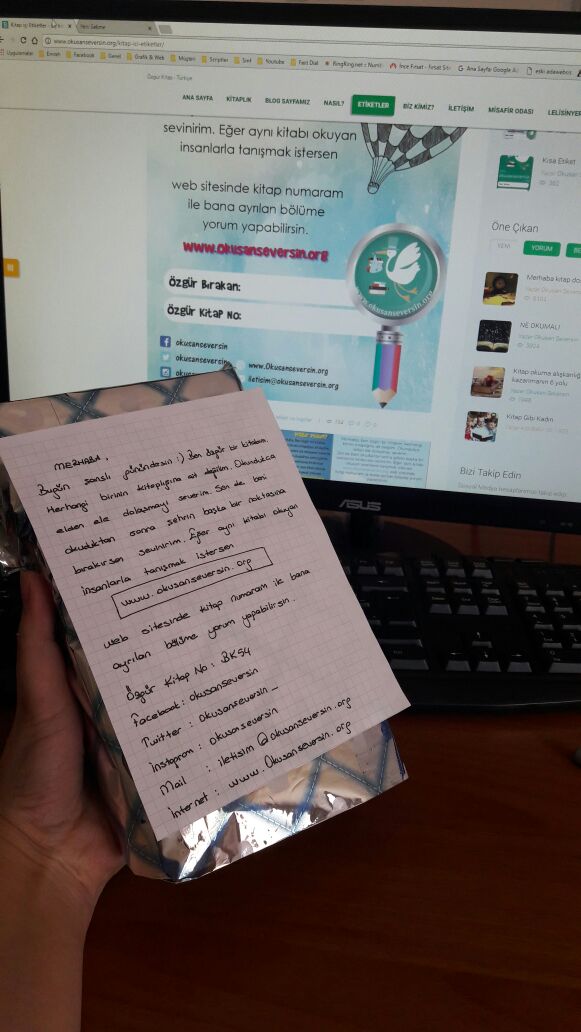 Kitap içi Etiketler
Yeni Sekme
www.okusanseversin.org/kitap-ici-etiketler/
Uygulamalar
Facebook
Genel
Grafik & Web
Müşteri
Scriptler
Sınıf
Youtube
Fast Dial
İnce Fırsat - Fırsat Sit
Ana Sayfa: Google A
eski adawebos
Özgür Kitap - Türkiye
ANA SAYFA
KİTAPLIK
BLOG SAYFAMIZ
NASIL?
ETİKETLER
BİZ KİMİZ?
İLETİŞİM
MİSAFİR ODASI
LELİSİNYER
sevinirim. Eğer aynı kitabı okuyan
insanlarla tanışmak istersen
web sitesinde kitap numaram
ile bana ayrılan bölüme
yorum yapabilirsin.
www.okusanseversin.org
Özgür Bırakan:
Özgür Kitap No:
okusanseversin
okusanseversin_
www.Okusanseversin.org
iletisim@okusanseversin.org
www.okusanseversin.org
Kısa Etiket
Yazar Okusan
382
Öne Çıkan
YENİ
YORUM
BE
Merhaba kitap do
Yazar Okusan Seversin
NE OKUMALI
Yazar Okusan Seversin
3904
Kitap okuma alışkanlığı
kazanmanın 6 yolu
Yazar Okusan Seversin
Kitap Gibi Kadın
Bizi Takip Edin
ASUS
MERHABA,
Bugün şanslı günündesin :) Ben özgür bir kitabım.
Herhangi birinin kitaplığına ait değilim. Okundukça
elden ele dolaşmayı severim. Sen de beni
okuduktan sonra şehrin başka bir noktasına
bırakırsan sevinirim. Eğer aynı kitabı okuyan
insanlarla tanışmak istersen
www.okusanseversin.org
web sitesinde kitap numaram ile bana
ayrılan bölüme yorum yapabilirsin.
Özgür Kitap No: BK54
Facebook: okusanseversin
Twitter : okusanseversin_
instagram : okusanseversin
Mail : iletisim@okusanseversin.org
internet : www.Okusanseversin.org